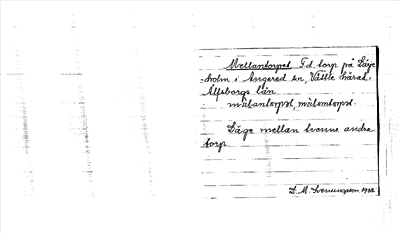 Mellantorpet F.d. torp på Säje-
holm i Angered sn, Vättle härad,
Älfsborgs län
mälantorpst, mälomtorpst.
Läge mellan tvenne andra
torp.
S. M. Svenungsson 1922